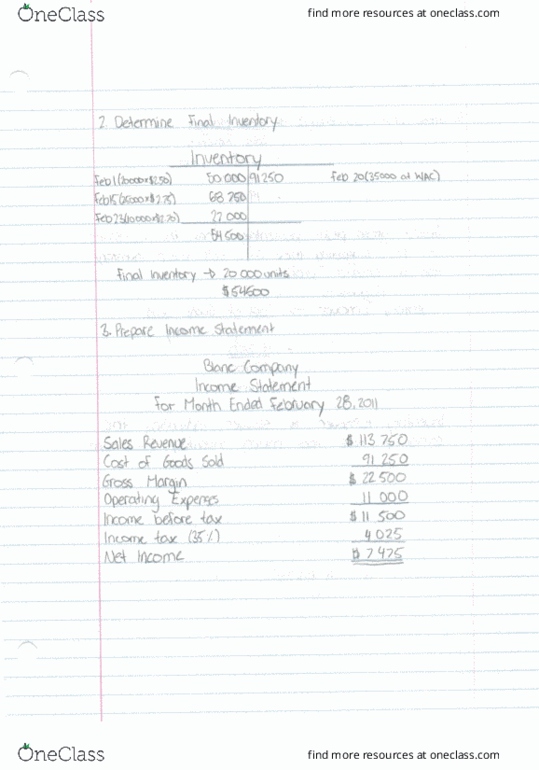 OneClass find more resources at oneclass.com
2. Determine Final Inventory
Inventory
Feb 1 (20000x$2.50) 50 000 91250 Feb 20 (35000 at WAC)
Feb 15 (25000x$2.75) 68 750
Feb 23 (10000x$2.70) 27 000
54 500
Final Inventory → 20 000 units
$54500
3. Prepare Income Statement
Blanc Company
Income Statement
For Month Ended February 28, 2011
Sales Revenue $ 113 750
Cost of Goods Sold 91 250
Gross Margin $ 22 500
Operating Expenses 11 000
Income before tax $ 11 500
Income tax (35%) 4 025
Net Income $ 7 475
OneClass find more resources at oneclass.com